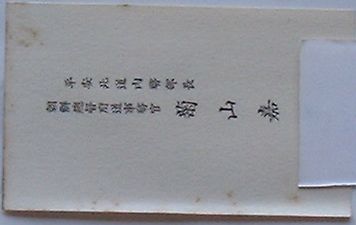 平安北道内務部長
朝鮮總督府道事務官
菊山嘉